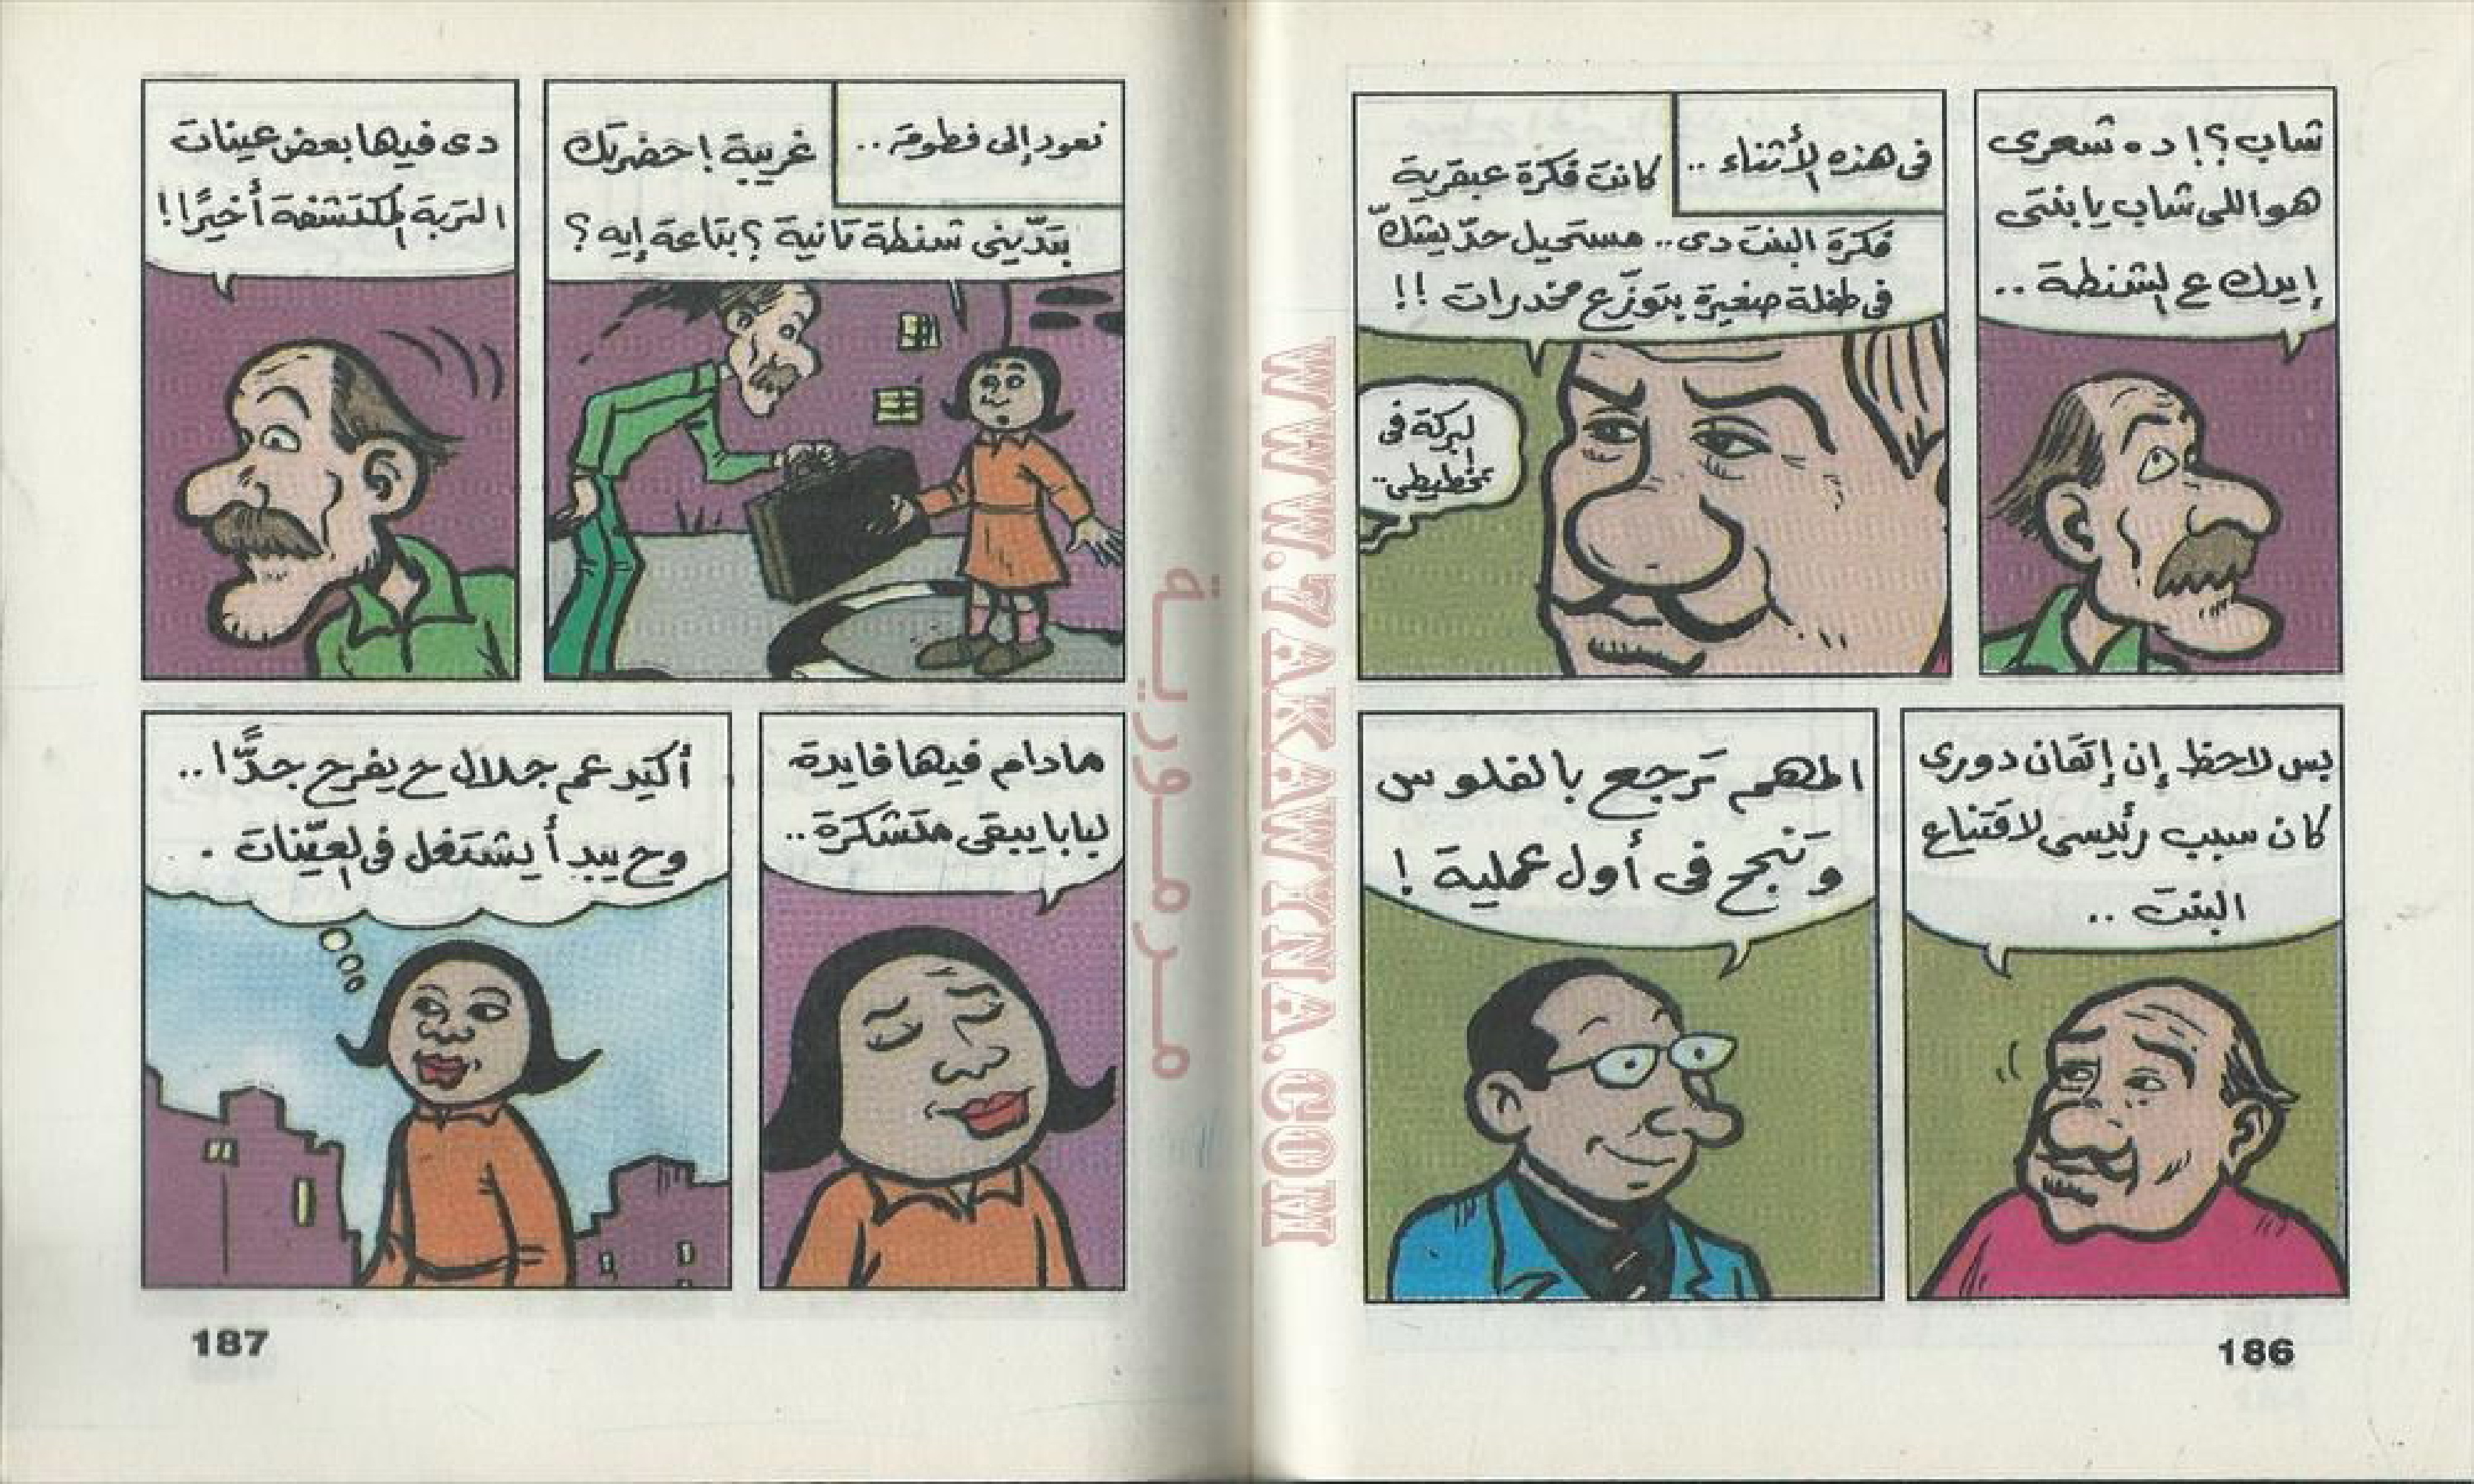 شاب؟! ده شعرى
هو اللى شاب يا بنتى
إيدك ع الشنطة ..
فى هذه الأثناء ..
كانت فكرة عبقرية
فكرة البنت دى .. مستحيل حدّ يشكّ
فى طفلة صغيرة بتوزّع مخدرات !!
البركة فى
تخطيطى ..
بس لاحظ إن إتقان دورى
كان سبب رئيسى لاقتناع
البنت ..
المهم تَرجع بالفلوس
وتنجح فى أول عملية !
186
نعود إلى فطومة ..
غريبة ! حضرتك
بتدّينى شنطة تانية ؟ بتاعة إيه ؟
دى فيها بعض عينات
التربة المكتشفة أخيرًا !!
مادام فيها فايدة
لبابا يبقى متشكرة ..
أكيد عم جلال ح يفرح جدًّا ..
وح يبدأ يشتغل فى العيّنات .
187
مرمورية
WWW.7AKAWYNA.COM